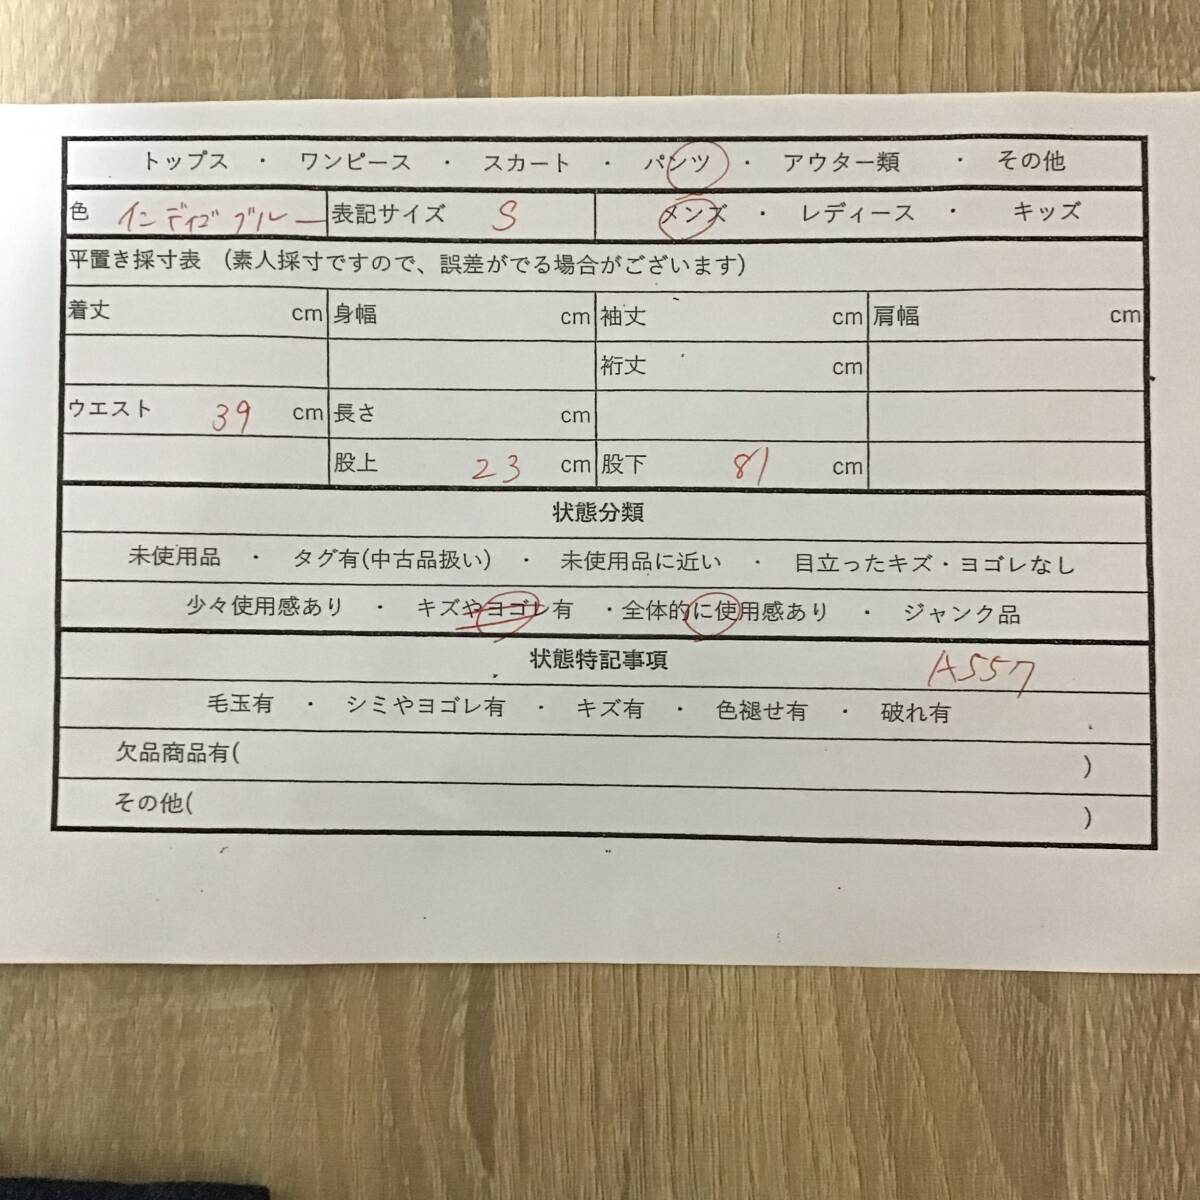 トップス ・ ワンピース ・ スカート ・ パンツ ・ アウター類 ・ その他
色 インディゴブルー 表記サイズ S メンズ ・ レディース ・ キッズ
平置き採寸表 (素人採寸ですので、誤差がでる場合がございます)
着丈 cm 身幅 cm 袖丈 cm 肩幅 cm
裄丈 cm
ウエスト 39 cm 長さ cm
股上 23 cm 股下 81 cm
状態分類
未使用品 ・ タグ有(中古品扱い) ・ 未使用品に近い ・ 目立ったキズ・ヨゴレなし
少々使用感あり ・ キズやヨゴレ有 ・全体的に使用感あり ・ ジャンク品
状態特記事項 A557
毛玉有 ・ シミやヨゴレ有 ・ キズ有 ・ 色褪せ有 ・ 破れ有
欠品商品有( )
その他( )